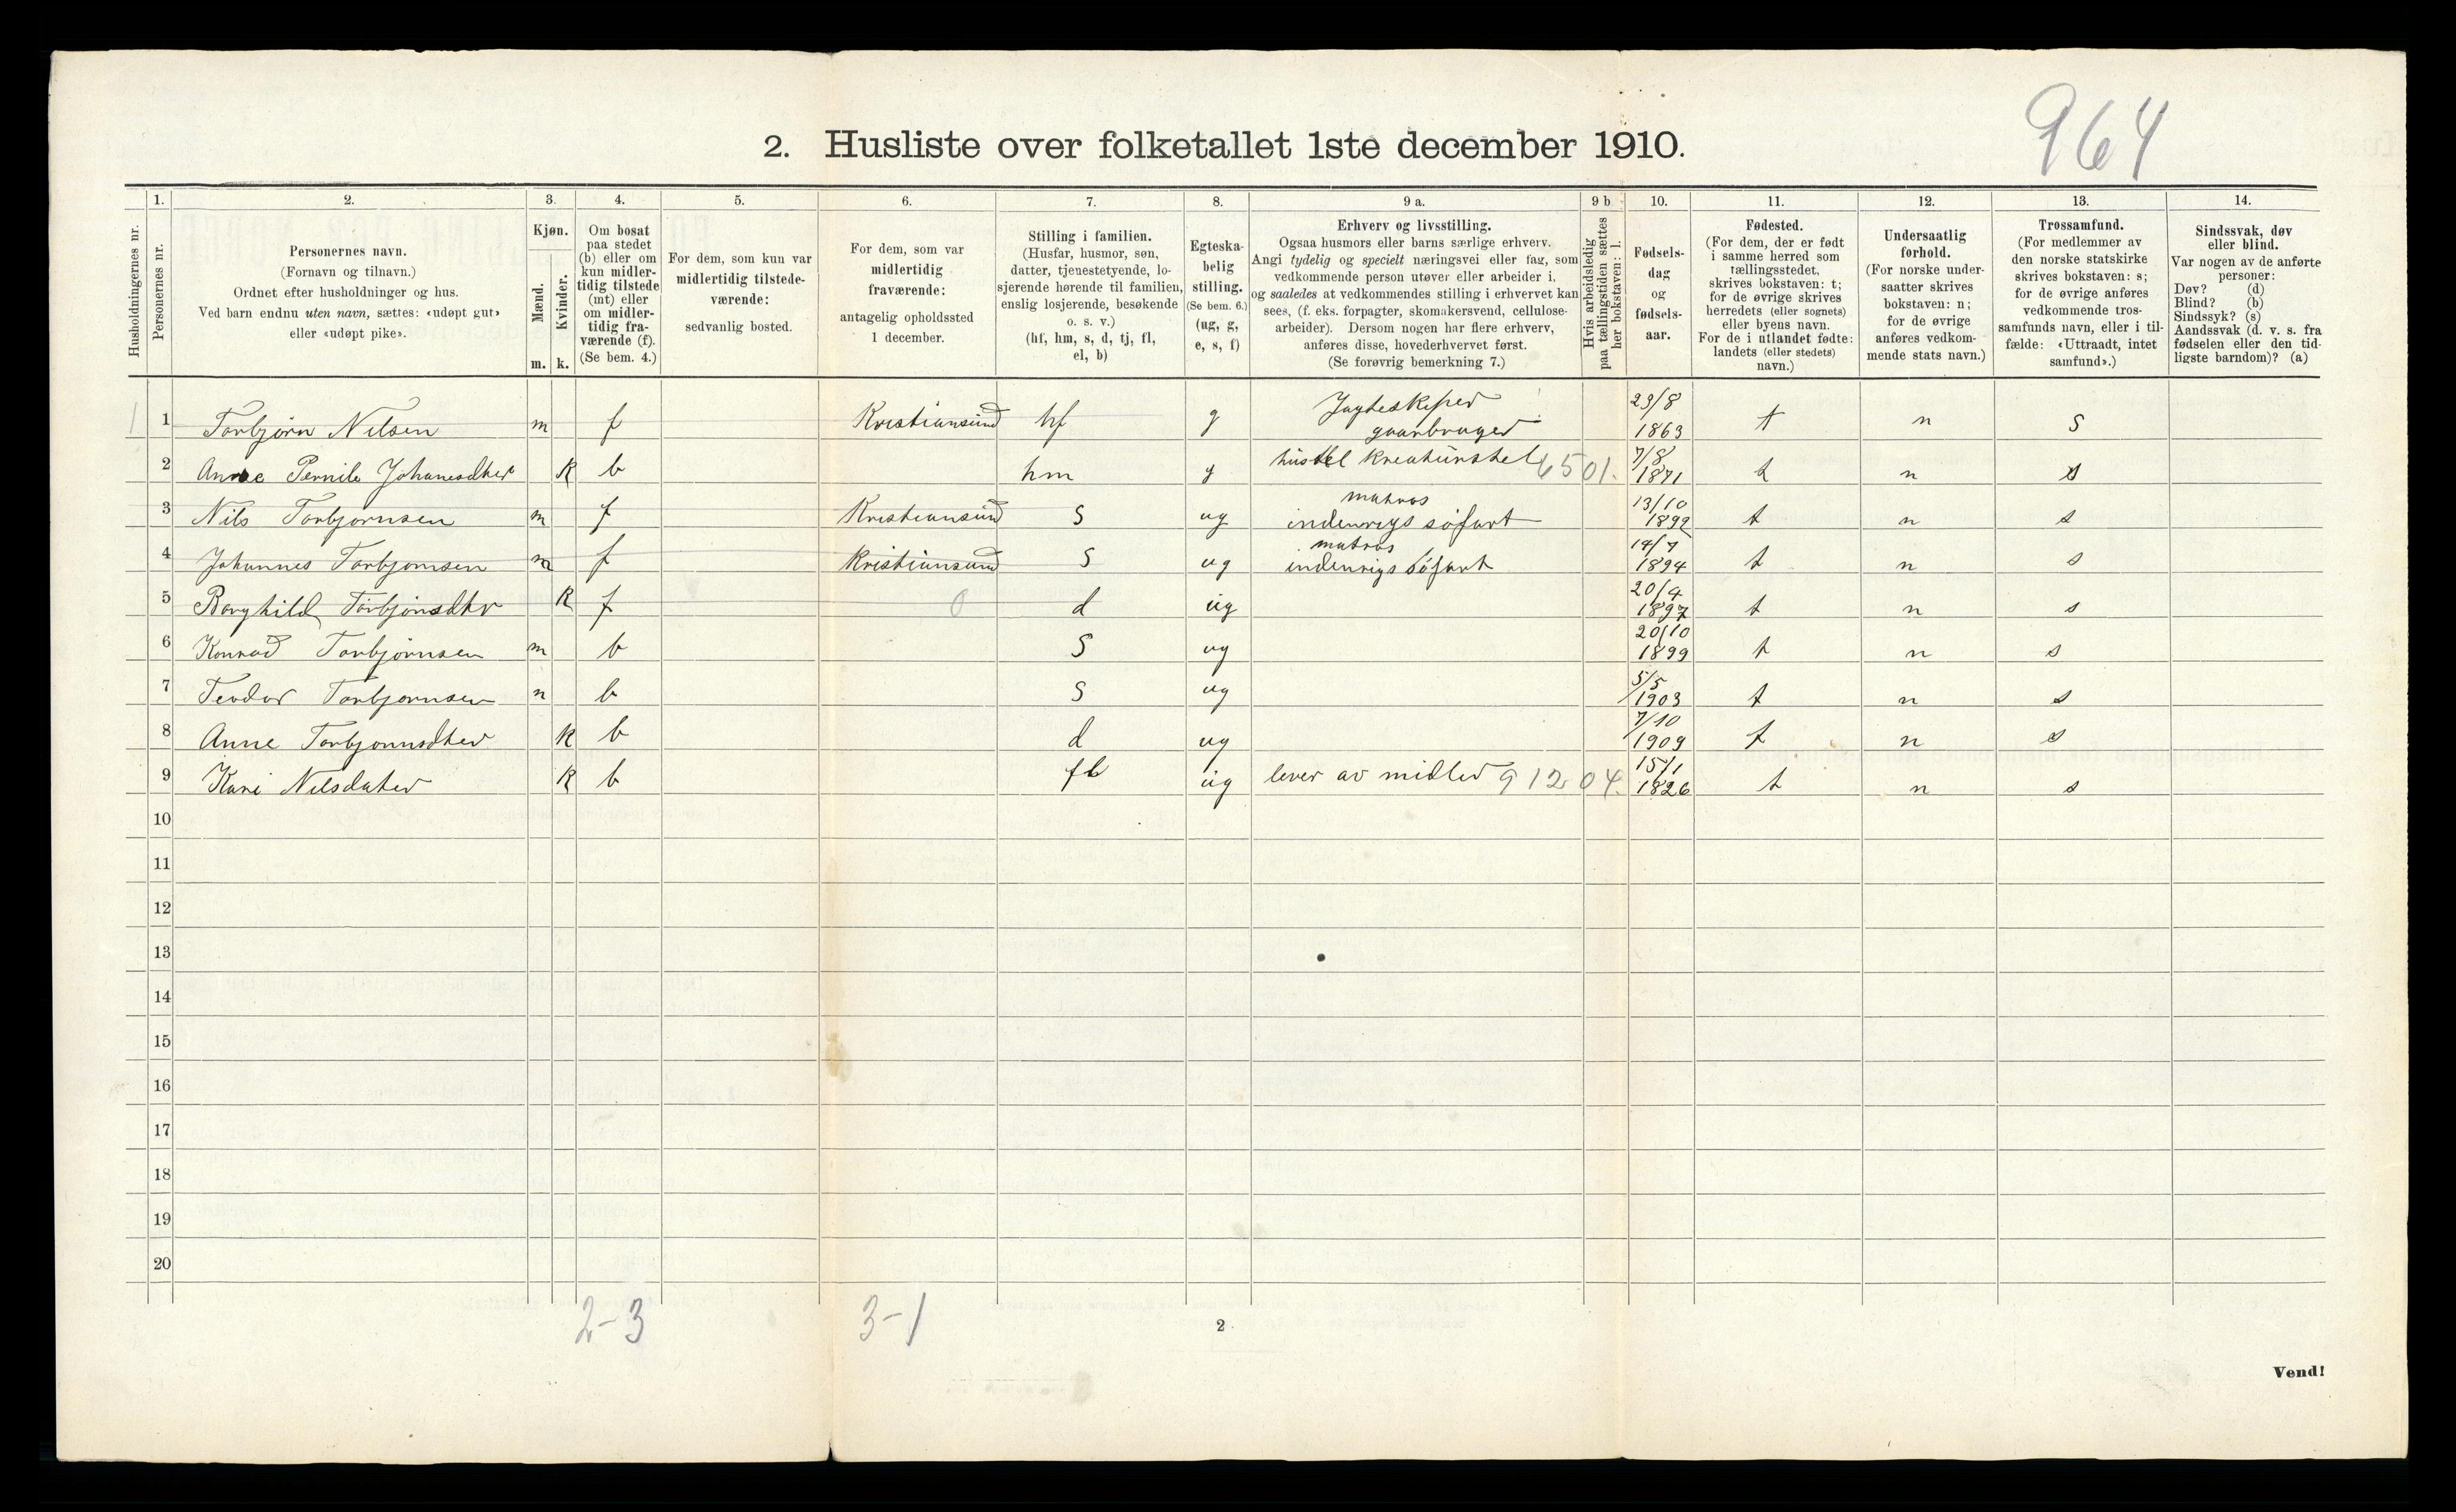 964
2. Husliste over folketallet 1ste december 1910.
Husholdningernes nr.
1.
Personernes nr.
2.
Personernes navn.
(Fornavn og tilnavn.)
Ordnet efter husholdninger og hus.
Ved barn endnu uten navn, sættes: «udøpt gut»
eller «udøpt pike».
3.
Kjøn.
Mænd.
m.
Kvinder.
k.
4.
Om bosat
paa stedet
(b) eller om
kun midler-
tidig tilstede
(mt) eller
om midler-
tidig fra-
værende (f).
(Se bem. 4.)
5.
For dem, som kun var
midlertidig tilstede-
værende:
sedvanlig bosted.
6.
For dem, som var
midlertidig
fraværende:
antagelig opholdssted
1 december.
7.
Stilling i familien.
(Husfar, husmor, søn,
datter, tjenestetyende, lo-
sjerende hørende til familien,
enslig losjerende, besøkende
o. s. v.)
(hf, hm, s, d, tj, fl,
el, b)
8.
Egteska-
belig
stilling.
(Se bem. 6.)
(ug, g,
e, s, f)
9 a.
Erhverv og livsstilling.
Ogsaa husmors eller barns særlige erhverv.
Angi tydelig og specielt næringsvei eller fag, som
vedkommende person utøver eller arbeider i,
og saaledes at vedkommendes stilling i erhvervet kan
sees, (f. eks. forpagter, skomakersvend, cellulose-
arbeider). Dersom nogen har flere erhverv,
anføres disse, hovederhvervet først.
(Se forøvrig bemerkning 7.)
9 b
Hvis arbeidsledig
paa tællingstiden sættes
her bokstaven: l.
10.
Fødsels-
dag
og
fødsels-
aar.
11.
Fødested.
(For dem, der er født
i samme herred som
tællingsstedet,
skrives bokstaven: t;
for de øvrige skrives
herredets (eller sognets)
eller byens navn.
For de i utlandet fødte:
landets (eller stedets)
navn.)
12.
Undersaatlig
forhold.
(For norske under-
saatter skrives
bokstaven: n;
for de øvrige
anføres vedkom-
mende stats navn.)
13.
Trossamfund.
(For medlemmer av
den norske statskirke
skrives bokstaven: s;
for de øvrige anføres
vedkommende tros-
samfunds navn, eller i til-
fælde: «Uttraadt, intet
samfund».)
14.
Sindssvak, døv
eller blind.
Var nogen av de anførte
personer:
Døv? (d)
Blind? (b)
Sindssyk? (s)
Aandssvak (d. v. s. fra
fødselen eller den tid-
ligste barndom)? (a)
1 1 Torbjørn Nilsen m f Kristiansund hf g Jagteskiper gaarbruger 23/8 1863 t n S
2 Anne Pernile Johanesdter K b hm g husstel kreaturstel 6501. 7/8 1871 t n s
3 Nils Torbjørnsen m f Kristiansund S ug matros indenrigs søfart 13/10 1892 t n s
4 Johannes Torbjørnsen m f Kristiansund S ug matros indenrigs søfart 14/7 1894 t n s
5 Borghild Torbjørnsdtr K f 0 d ug 20/4 1897 t n s
6 Konrad Torbjørnsen m b S ug 20/10 1899 t n s
7 Teodor Torbjørnsen m b S ug 5/5 1903 t n s
8 Anne Torbjørnsdter K b d ug 7/10 1909 t n s
9 Kari Nilsdater K b fl ug lever av midler 91204. 15/1 1826 t n s
10
11
12
13
14
15
16
17
18
19
20
2-3
3-1
2
Vend!